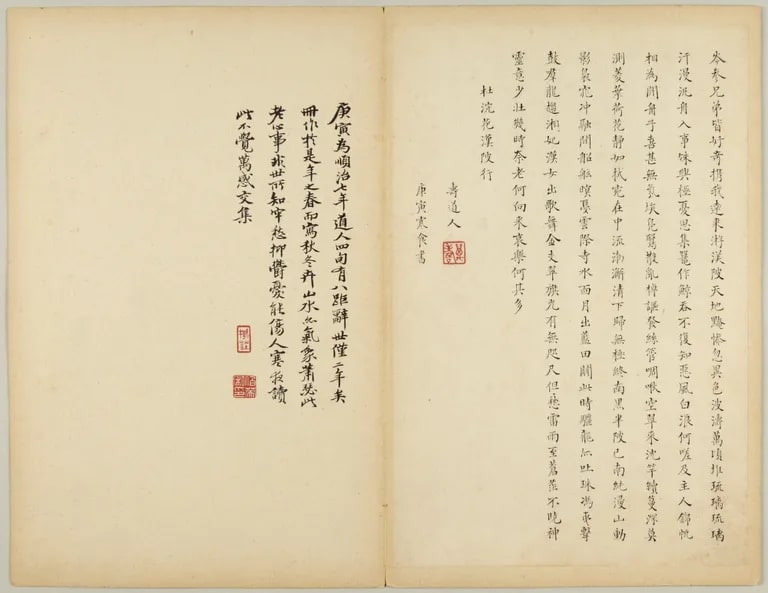 岑參兄弟皆好奇携我遠來游渼陂天地黯慘忽異色波濤萬頃堆琉璃琉璃
汗漫汎舟入事殊興極憂思集鼉作鯨吞不復知惡風白浪何嗟及主人錦帆
相為開舟子喜甚無氛埃鳧鷖散亂棹謳發絲管啁啾空翠來沈竿續蔓深莫
測菱葉荷花靜如拭宛在中流渤澥清下歸無極終南黑半陂已南純浸山動
影裊窕冲融間船舷暝戛雲際寺水面月出藍田關此時驪龍亦吐珠馮夷擊
鼓羣龍趨湘妃漢女出歌舞金支翠旗光有無咫尺但愁雷雨至蒼茫不曉神
靈意少壯幾時奈老何向來哀樂何其多
杜浣花渼陂行
壽道人
庚寅寒食書
庚寅為順治七年道人四旬有八距辭世僅二年矣
冊作於是年之春而寫秋冬卉山水亦氣象蕭瑟此
老心事世所知牢愁抑鬱憂能傷人寒夜讀
此不覺萬感交集